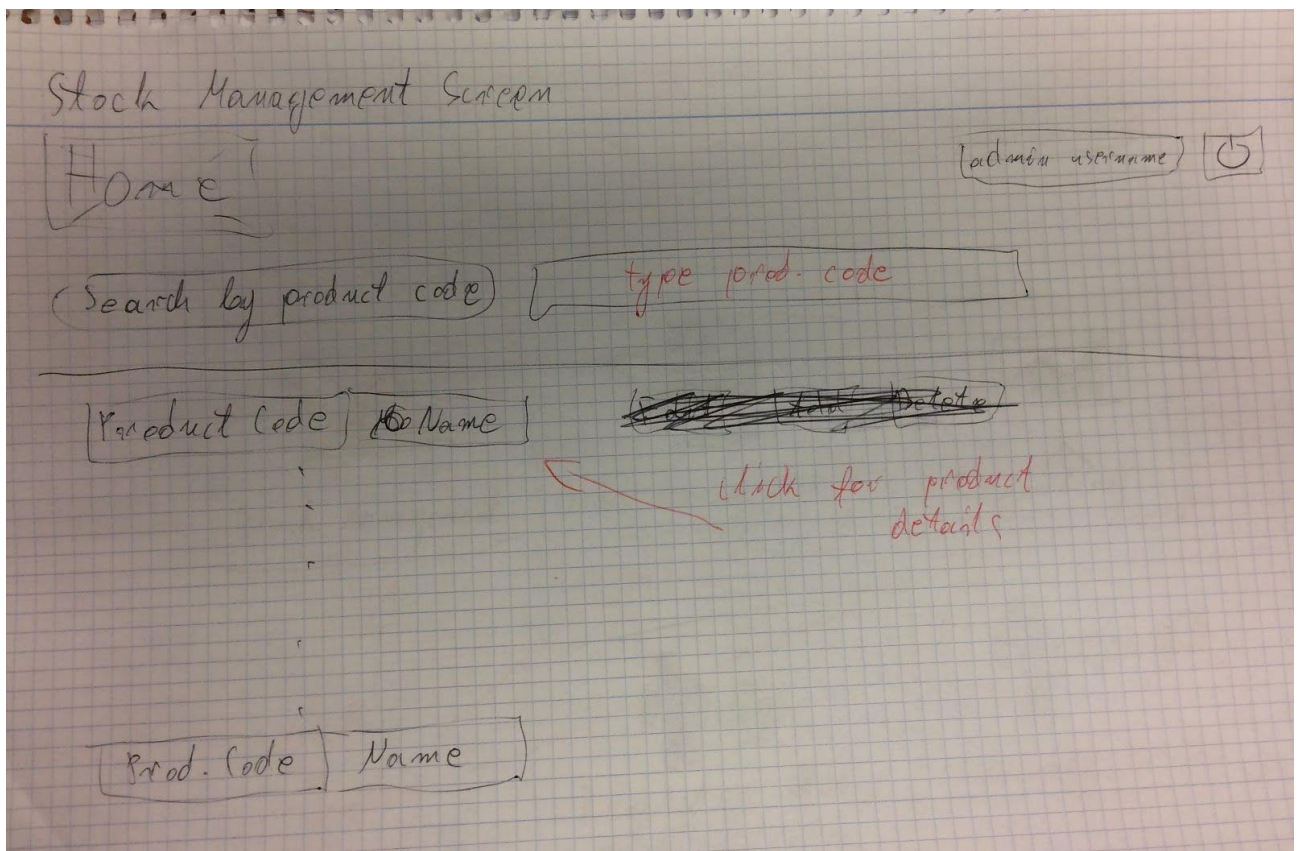 Stock Management Screen
Home
admin username
Search by product code
type prod. code
Product Code Name
Delete
click for product
details
Prod. Code Name